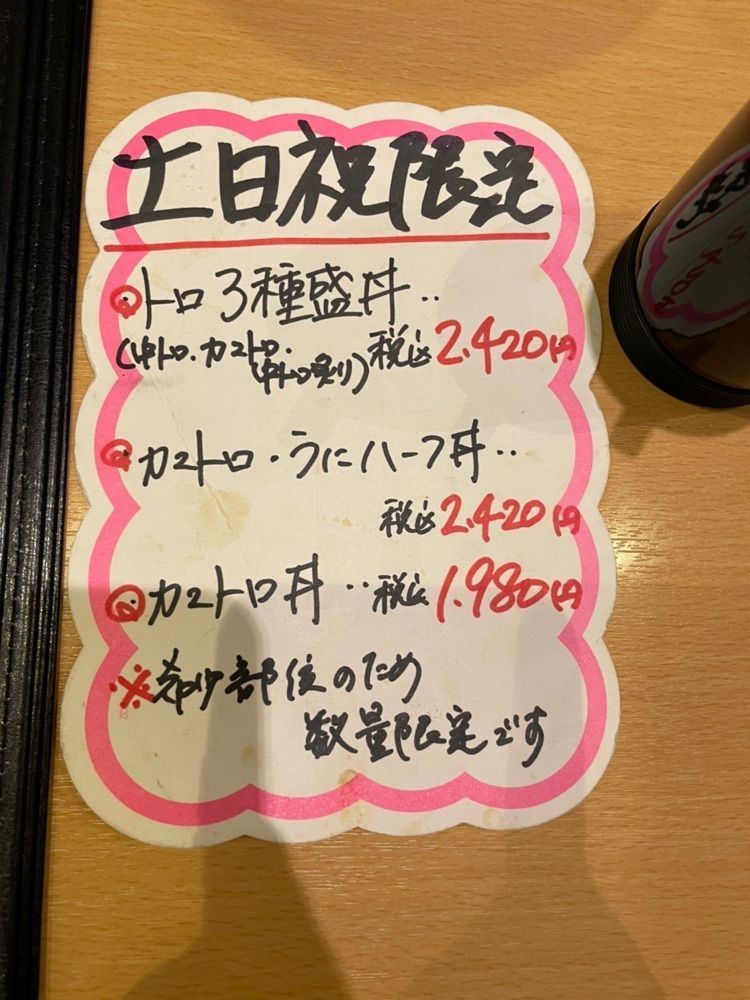 土日祝限定
トロ3種盛丼‥
(中トロ.カマトロ.
中トロ炙り) 税込2.420円
カマトロ・うにハーフ丼‥
税込2.420円
カマトロ丼‥税込1.980円
※希少部位のため
数量限定です